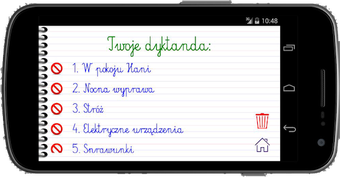 10:48
Twoje dyktanda:
1. W pokoju Hani
2. Nocna wyprawa
3. Stróż
4. Elektryczne urządzenia
5. Sprawunki